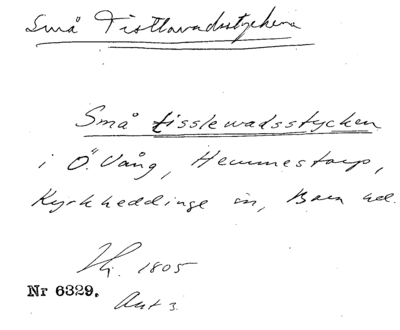 Små Tistlavadsstyckena
Små tisslewadsstycken
i Ö. Vång, Hemmestorp,
Kyrkheddinge sn, Bara hd.
Hj. 1805
Nr 6329.
Akt 3.